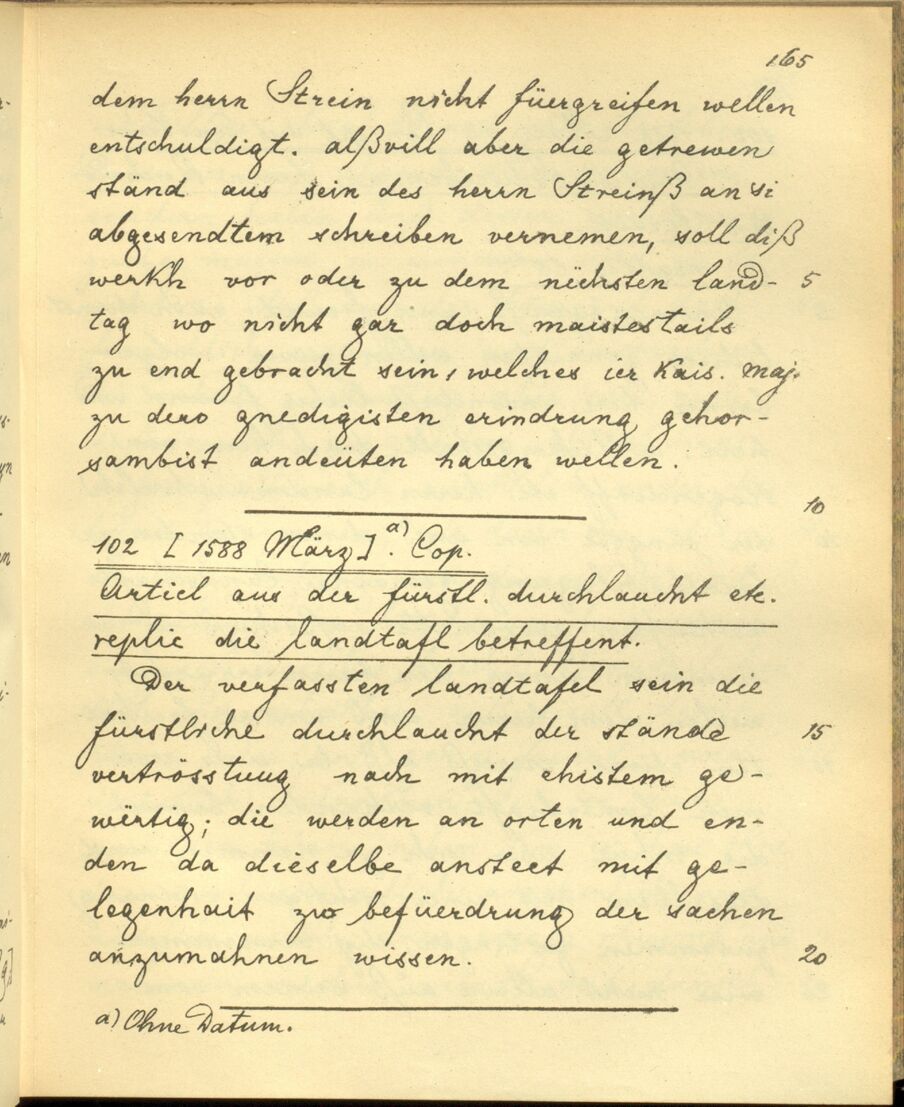 165
dem herrn Strein nicht füergreifen wellen
entschuldigt. alßvill aber die getrewen
ständ aus sein des herrn Streinß an si
abgesendtem schreiben vernemen, soll diß
werkh vor oder zu dem nëchsten land- 5
tag wo nicht gar doch maistestails
zu end gebracht sein, welches ier Kais. Maj.
zu dero gnedigisten erindrung gehor-
sambist andeüten haben wellen.
10
102 [1588 März]. a) Cop.
Articl aus der fürstl. durchlaucht etc.
replic die landtafl betreffent.
Der verfassten landtafel sein die
fürstliche durchlaucht der stände 15
vertrösstung nach mit ehistem ge-
wërtig; die werden an orten und en-
den da dieselbe ansteet mit ge-
legenhait zw befüerdrung der sachen
anzumahnen wissen. 20
a) Ohne Datum.